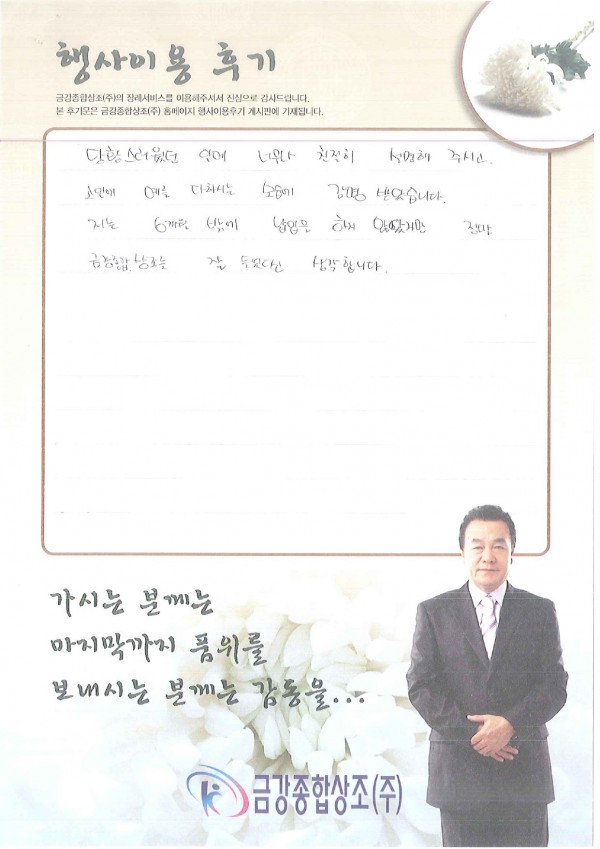 행사이용 후기
금강종합상조(주)의 장례서비스를 이용해주셔서 진심으로 감사드립니다.
본 후기문은 금강종합상조(주) 홈페이지 행사이용후기 게시판에 기재됩니다.
당황스러웠던 일에 너무나 친절히 설명해 주시고.
고인에 예를 다하시는 모습에 감명 받았습니다.
저는 6개월 밖에 납입은 하지 않았지만
금강종합상조는 잘 생각합니다.
가시는 분께는
마지막까지 품위를
보내시는 분께는 감동을...
금강종합상조(주)